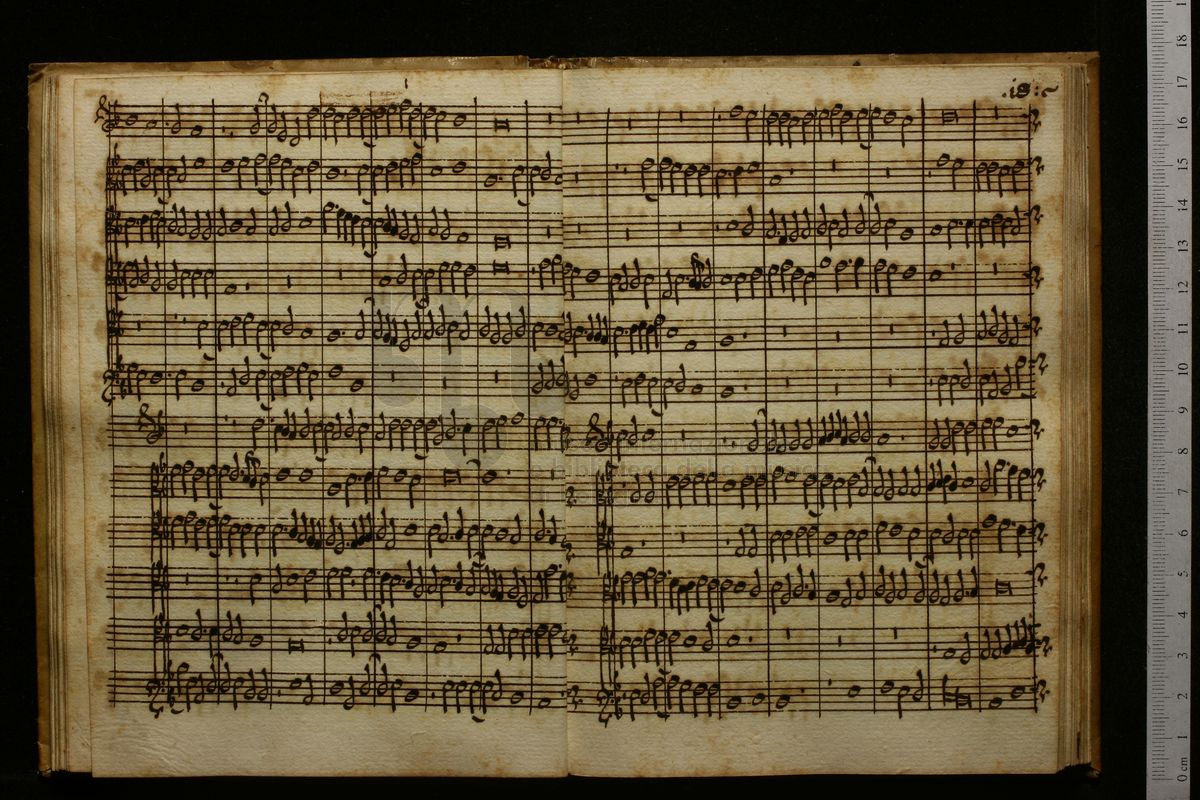 .18:
biblioteca della musica
18
17
16
15
14
13
12
11
10
9
8
7
6
5
4
3
2
1
0 cm